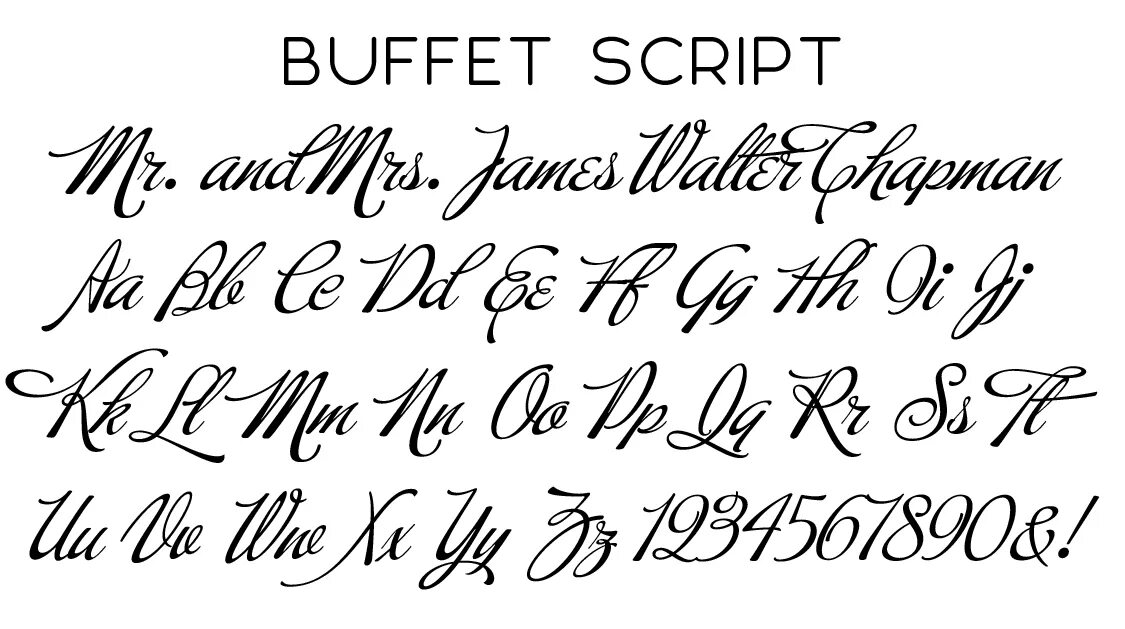 BUFFET SCRIPT
Mr. and Mrs. James Walter Chapman
Aa Bb Cc Dd Ee Ff Gg Hh Ii Jj
Kk Ll Mm Nn Oo Pp Qq Rr Ss Tt
Uu Vv Ww Xx Yy Zz 1234567890&!